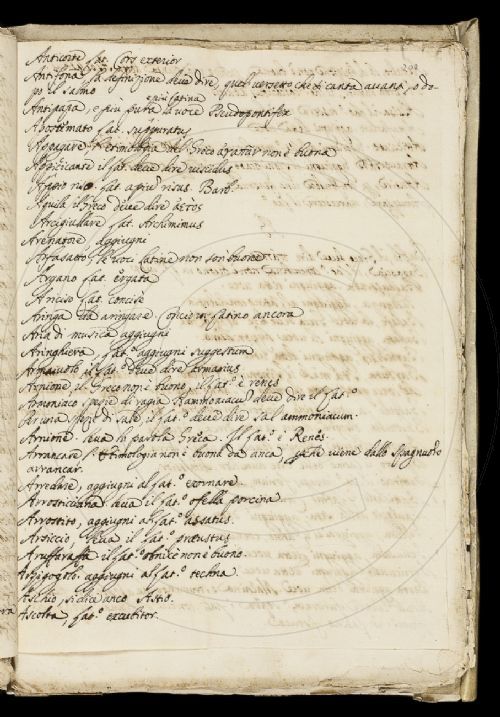 202
Anticorte lat. Cors exterior
Antifona la definizione deve dire, quel versetto che si canta avanti, o do-
po il salmo
Antipapa, e più latina la voce Pseudopontifex
Apostemato lat. suppuratus
Appagare l'etimologia del Greco non è buona
Appiccicante il lat. deve dire viscidus
Aquila il Greco deve dire ἀετός
Arcigiullare lat. Archimimus
Arenatone aggiugni
Arfasatto, le voci latine non son buone
Argano lat. ergata
Ariciso lat. concisè
Aringa da aringare
Aria di musica aggiugni
Aringhiera, lat.º aggiugni suggestum
Armaiuolo il lat.º deve dire armarius
Arnione il Greco non è buono, il lat.º è renes
Armoniaco specie di ragia Hammoniacum deve dire il lat.º
Per una specie di sale, il lat.º deve dire sal ammoniacum
Arnione leva la parola Greca. Il lat.º è Renes
Arrancare l'Etimologia non è buona da anca, viene dallo Spagnuolo
arrancar.
Arredare, aggiugni al lat.º exornare
Arrosticciana leva il lat.º ofella porcina
Arrostito, aggiugni al lat.º assatus
Arsiccio, leva il lat.º praeustus
Aruffaraffa il lat.º non è buono
Arzigogolo aggiugni al lat.º techna
Aschio, si dice anco Astio.
Ascolta, lat.º excubitor.